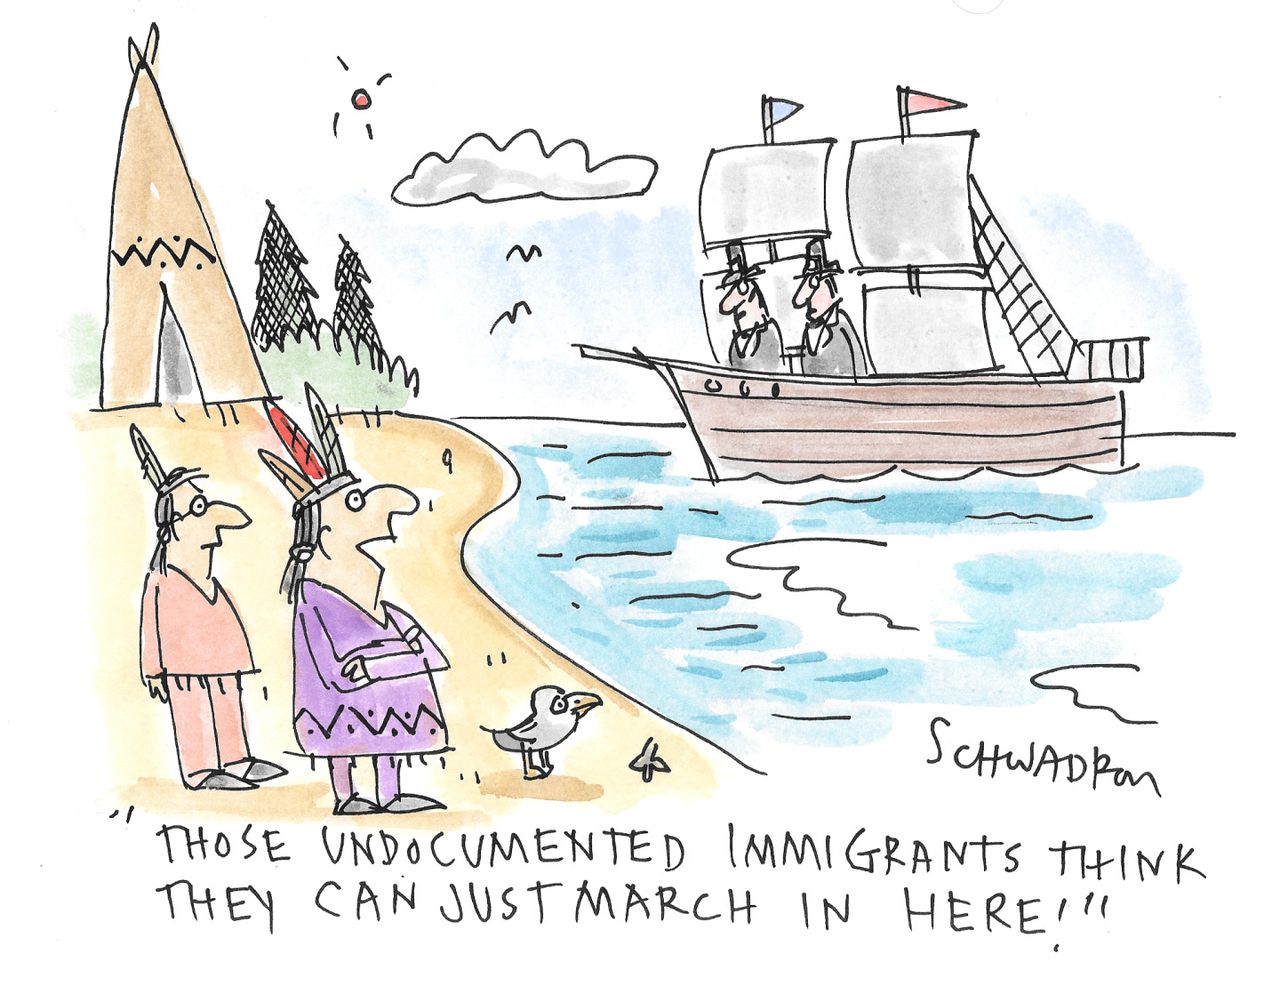 SCHWADRON
"THOSE UNDOCUMENTED IMMIGRANTS THINK
THEY CAN JUST MARCH IN HERE!"